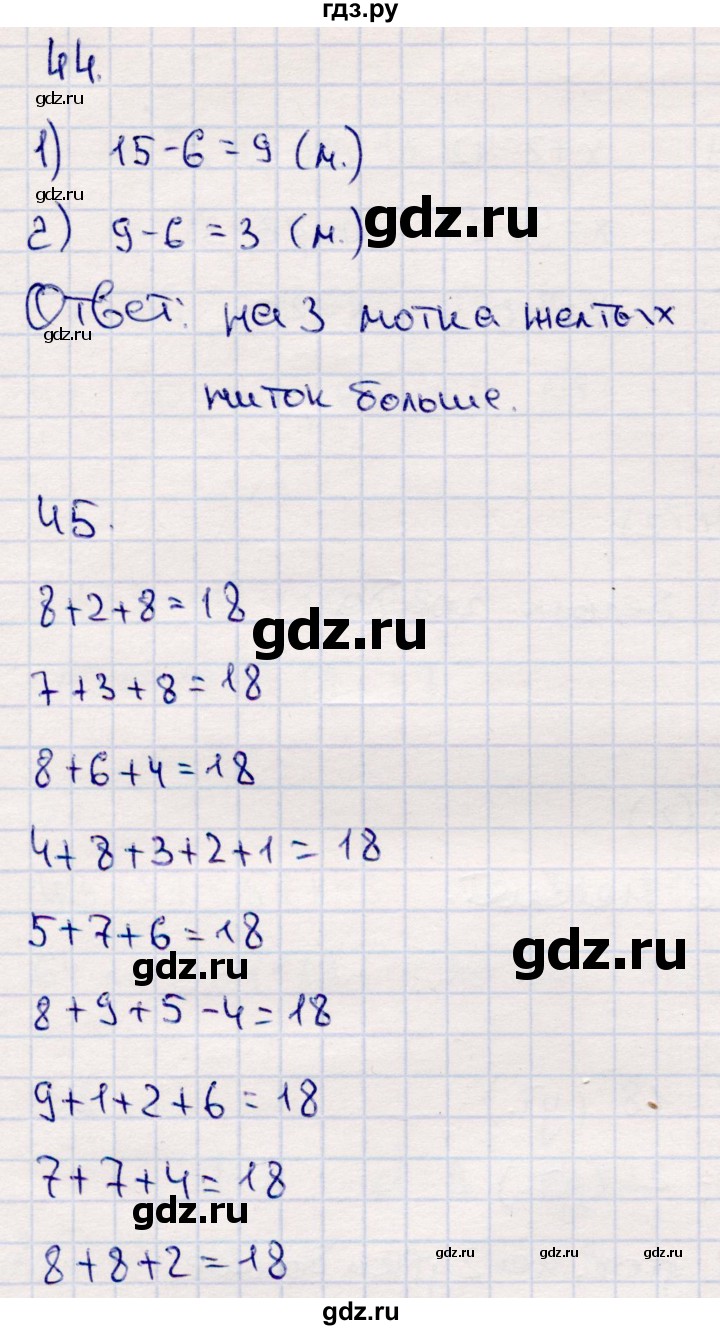 гдз.ру
44.
gdz.ru
1) 15-6=9 (м.)
gdz.ru
2) 9-6=3 (м.)
gdz.ru
Ответ: на 3 мотка желтых
gdz.ru
ниток больше.
45.
8+2+8=18
gdz.ru
7+3+8=18
8+6+4=18
4+8+3+2+1=18
5+7+6=18
gdz.ru
gdz.ru
8+9+5-4=18
9+1+2+6=18
7+7+4=18
gdz.ru
8+8+2=18
gdz.ru
gdz.ru
gdz.ru
gdz.ru